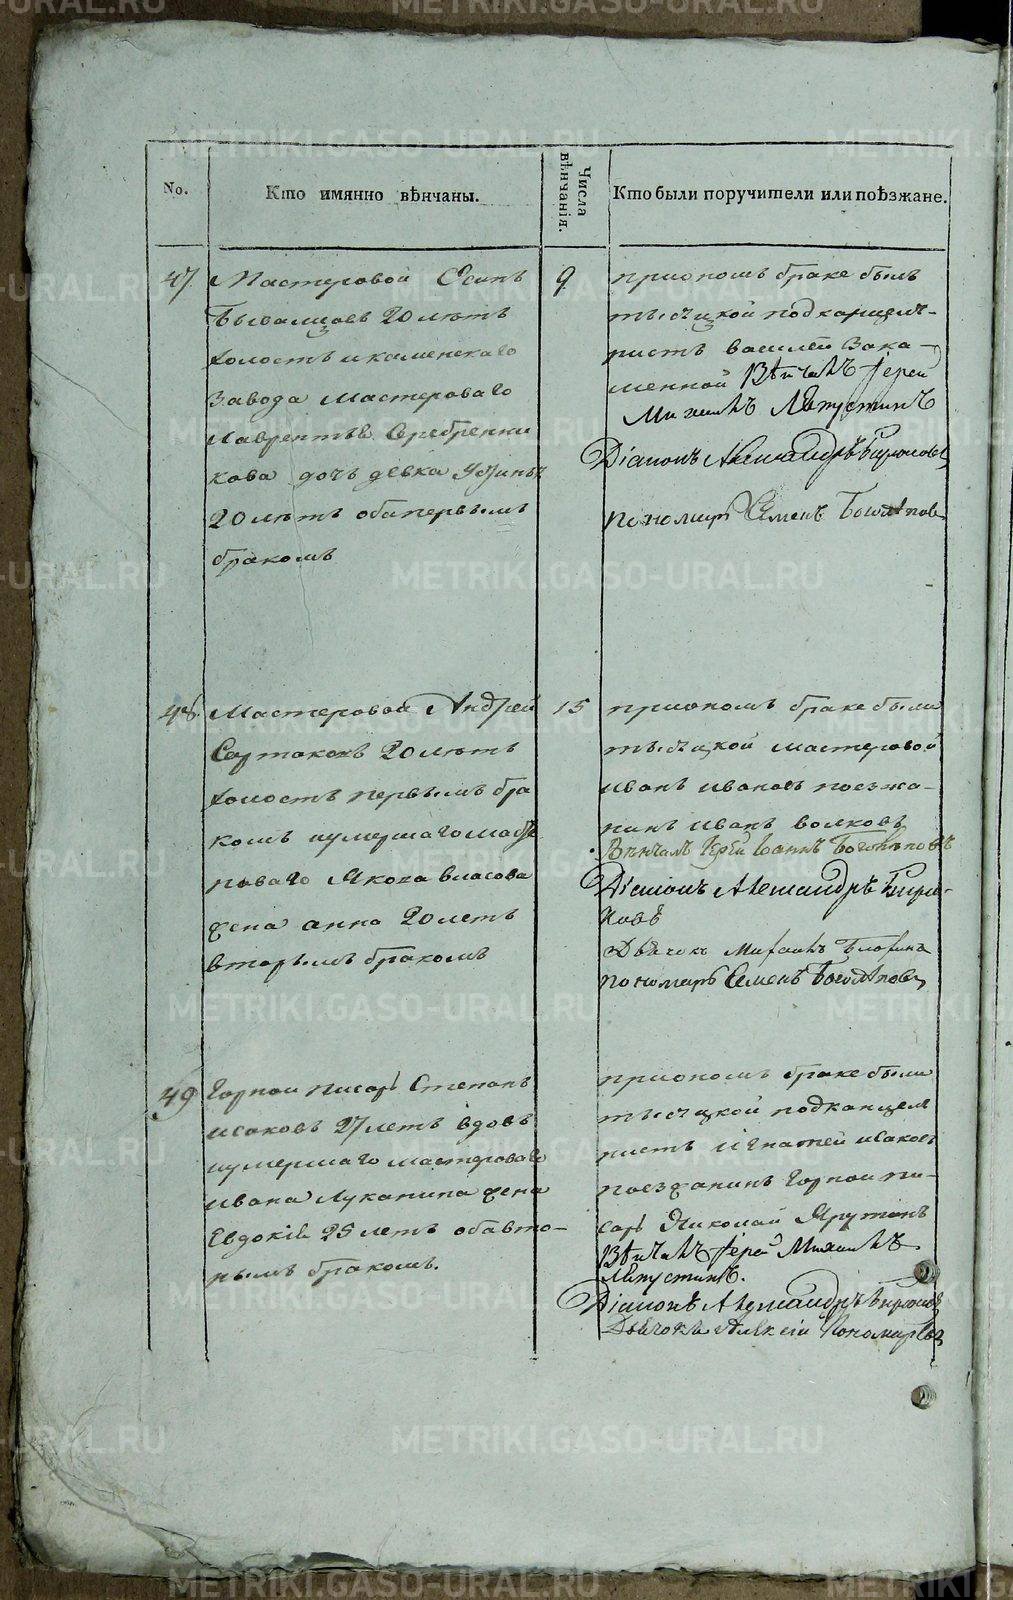 No.
Кто имянно вѣнчаны.
Числа вѣнчанія.
Кто были поручители или поѣзжане.
47. Мастеровой Осипъ
20 лѣтъ
холостъ и каменскаго
завода мастероваго
Лаврентья Серебренни
кова дочь девка Устинья
20 лѣтъ оба первымъ
бракомъ
9
при ономъ браке былъ
тысяцкой подканцеля-
ристъ василей Зака-
менной Вѣнчалъ Iерей
Михаилъ Левустинъ
Дiаконъ Александръ Бирюковъ
пономарь Семенъ Боголѣповъ
48. Мастеровой Андрей
Сартаковъ 20 лѣтъ
холостъ первымъ бра
комъ иумершаго масте
роваго Якова власова
жена анна 20 летъ
вторымъ бракомъ
15
при ономъ браке были
тысяцкой мастеровой
иванъ ивановъ поезжа-
нинъ иванъ волковъ
Вѣнчалъ Iерей Iоаннъ Боголѣповъ
Дiаконъ Александръ Бирю-
ковъ
Дьячекъ Михаилъ
пономарь Семенъ Боголѣповъ
49 Горной писарь Степанъ
исаковъ 27 летъ вдовъ
иумершаго мастероваго
ивана Луканина жена
Евдокiя 25 летъ оба вто-
рымъ бракомъ.
при ономъ браке были
тысяцкой подканцеля
ристъ игнатей исаковъ
поезжанинъ горной пи-
сарь Николай Ярутинъ
Вѣнчалъ Iерей Михаилъ
Левустинъ.
Дiаконъ Александръ Бирюковъ
Дьячокъ Алексiй Пономаревъ
METRIKI.GASO-URAL.RU